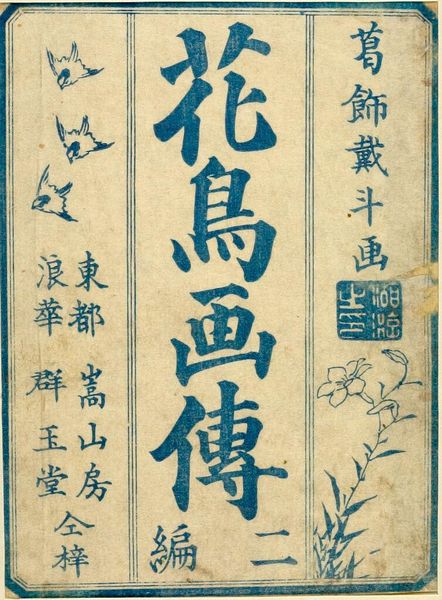 葛飾戴斗画
花鳥画傳
二編
東都 嵩山房
浪華 群玉堂
仝梓